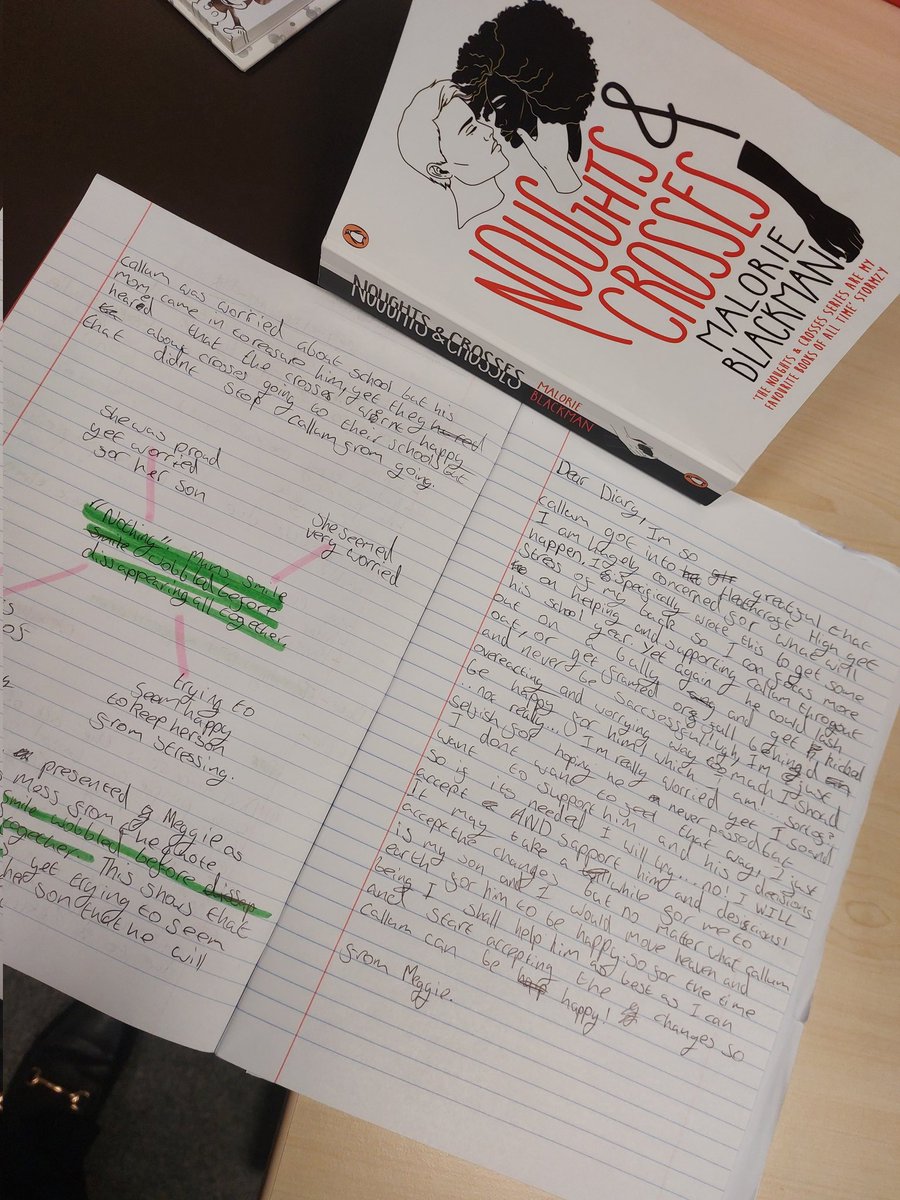 NOUGHTS
&
CROSSES
MALORIE
BLACKMAN
'THE NOUGHTS & CROSSES SERIES ARE MY
FAVOURITE BOOKS OF ALL TIME' STORMZY
NOUGHTS & CROSSES
MALORIE
BLACKMAN
callum was worried about school but his
mom came in to reasure him, yet they
heared that the crosses wernt happy
that about crosses going to their schools but
didnt stop callum from going.
She was proud
yet worried
for her son
She seemed
very worried
"Nothing" Mums smile
wobbled before
dissappearing all together.
trying to
seem happy
to keep her son
from stressing.
presented Meggie as
mess from the quote,
smile wobbled before
together. This shows that
yet trying to seem
her son that he will
Dear Diary, I'm so greatful that
callum got into Heathcroft High yet
I am largely concerned for what will
happen, I specifically wrote this to get some
stress of my back so I can focus more
on helping and supporting callum througout
his school year. yet again he could lash
out on a bully and get kicked
out, or get framed or fall behind
and never be sucsessful! ugh, I'm just
overeacting and worrying way to much I should
be happy for him! which I am! ... sortof?
...not really... I'm really worried yet I sound
selfish for hoping he never passed but
I dont want to see it that way, I just
want to support him and his decisions
so if its needed I will try... no! I WILL
accept AND support him and desicions!
It may take a while for me to
accept the changes but no matter what callum
is my son and I would move heaven and
earth for him to be happy. So for the time
being I shall help him as best as I can
and start accepting the changes so
callum can be happy!
from Meggie.